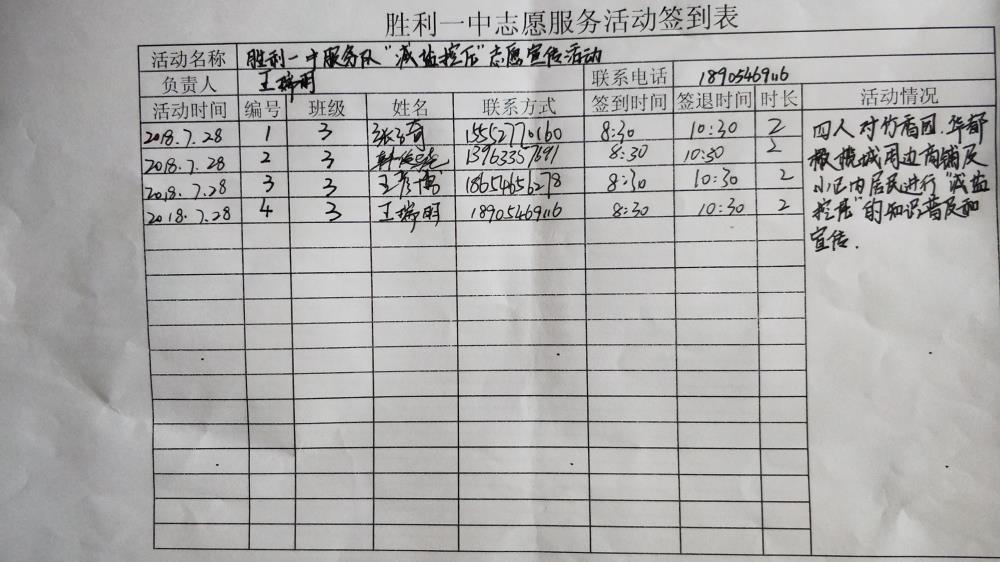 胜利一中志愿服务活动签到表
活动名称 胜利一中服务队“减盐控压”志愿宣传活动
负责人 王瑞明 联系电话 18905469116
活动时间 编号 班级 姓名 联系方式 签到时间 签退时间 时长 活动情况
2018.7.28 1 3 15552770160 8:30 10:30 2
2018.7.28 2 3 13963357691 8:30 10:30 2
2018.7.28 3 3 王彦博 18654656278 8:30 10:30 2
2018.7.28 4 3 王瑞明 18905469116 8:30 10:30 2
四人对竹香园.华都
城周边商铺及
小区内居民进行“减盐
控压”的知识普及和
宣传.